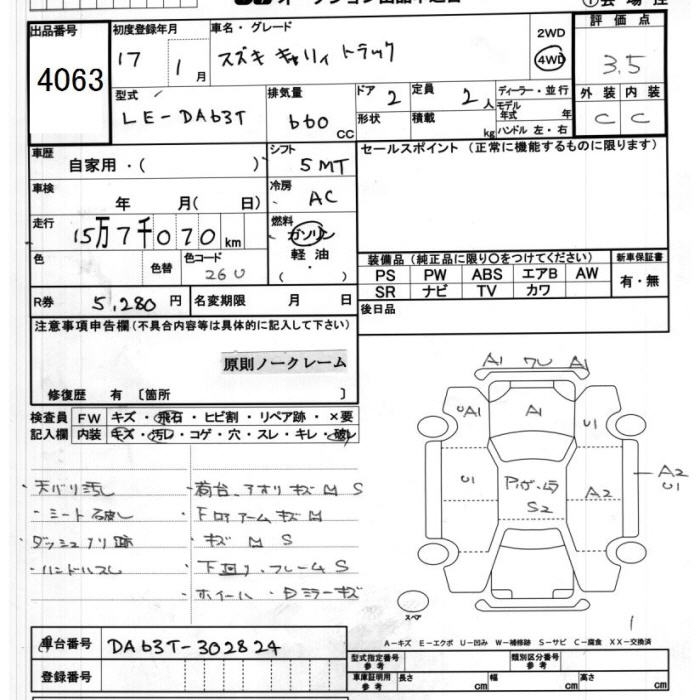 出品番号
4063
初度登録年月
17 1月
車名・グレード
スズキ キャリィ トラック
2WD
4WD
評価点
3.5
型式
LE-DA63T
排気量
660 CC
ドア 2
定員 2人
ディーラー・並行
モデル年式 年
ハンドル 左・右
形状
積載 kg
外装 内装
C C
車歴
自家用・( )
シフト
5MT
セールスポイント(正常に機能するものに限ります)
車検
年 月( 日)
冷房
AC
走行
15万7千070km
燃料
ガソリン
軽油
・
( )
色
色替
色コード
26U
装備品(純正品に限り〇をつけてください)
新車保証書
PS PW ABS エアB AW
有・無
SR ナビ TV カワ
R券 5,280円
名変期限 月 日
後日品
注意事項申告欄(不具合内容等は具体的に記入して下さい)
原則ノークレーム
修復歴 有 〔箇所 〕
検査員
記入欄
FW キズ・飛石・ヒビ割・リペア跡・×要
内装 キズ・汚レ・コゲ・穴・スレ・キレ・破レ
・天バリ汚し
・シート破し
・荷台、アオリキズ凹 S
・キズ 凹 S
・下回り、フレームS
・ホイール
A1 フU A1
UA1
A1
U1
U1
S2
A2
A2
U1
スペア
A-キズ E-エクボ U-凹み W-補修跡 S-サビ C-腐食 XX-交換済
車台番号
DA63T-302824
登録番号
型式指定番号
参考
類別区分番号
参考
車庫証明用
参考
長さ cm
幅 cm
高さ cm